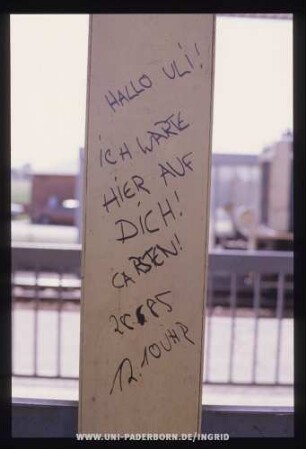 HALLO ULI!
ICH WARTE
HIER AUF
DICH!
CARSTEN!
12.10 UHR
WWW.UNI-PADERBORN.DE/INGRID